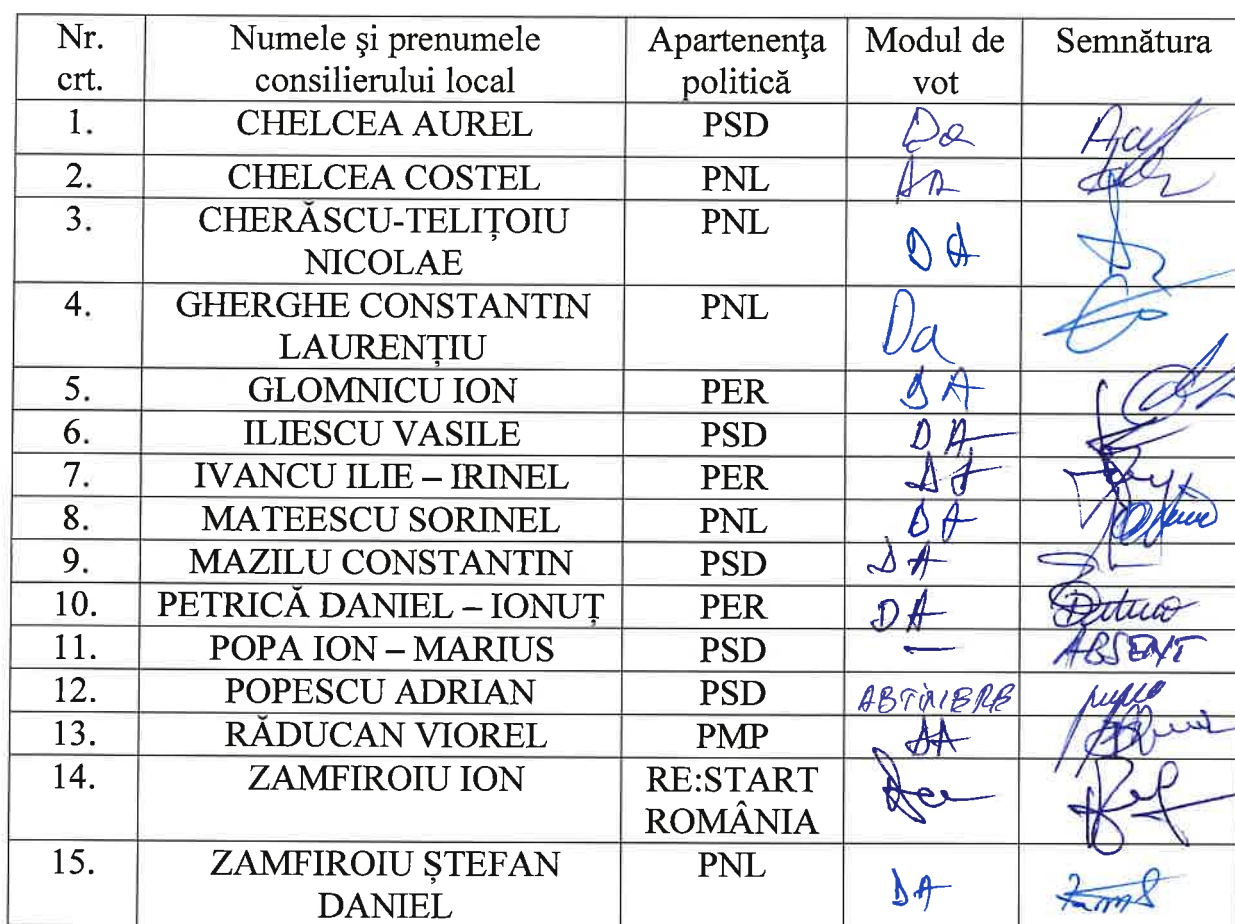 Nr. crt. Numele și prenumele consilierului local Apartenența politică Modul de vot Semnătura
1. CHELCEA AUREL PSD Da
2. CHELCEA COSTEL PNL DA
3. CHERĂSCU-TELIȚOIU NICOLAE PNL DA
4. GHERGHE CONSTANTIN LAURENȚIU PNL Da
5. GLOMNICU ION PER DA
6. ILIESCU VASILE PSD DA
7. IVANCU ILIE – IRINEL PER DA
8. MATEESCU SORINEL PNL DA
9. MAZILU CONSTANTIN PSD DA
10. PETRICĂ DANIEL – IONUȚ PER DA
11. POPA ION – MARIUS PSD — ABSENT
12. POPESCU ADRIAN PSD ABTINERE
13. RĂDUCAN VIOREL PMP DA
14. ZAMFIROIU ION RE:START ROMÂNIA Da
15. ZAMFIROIU ȘTEFAN DANIEL PNL DA